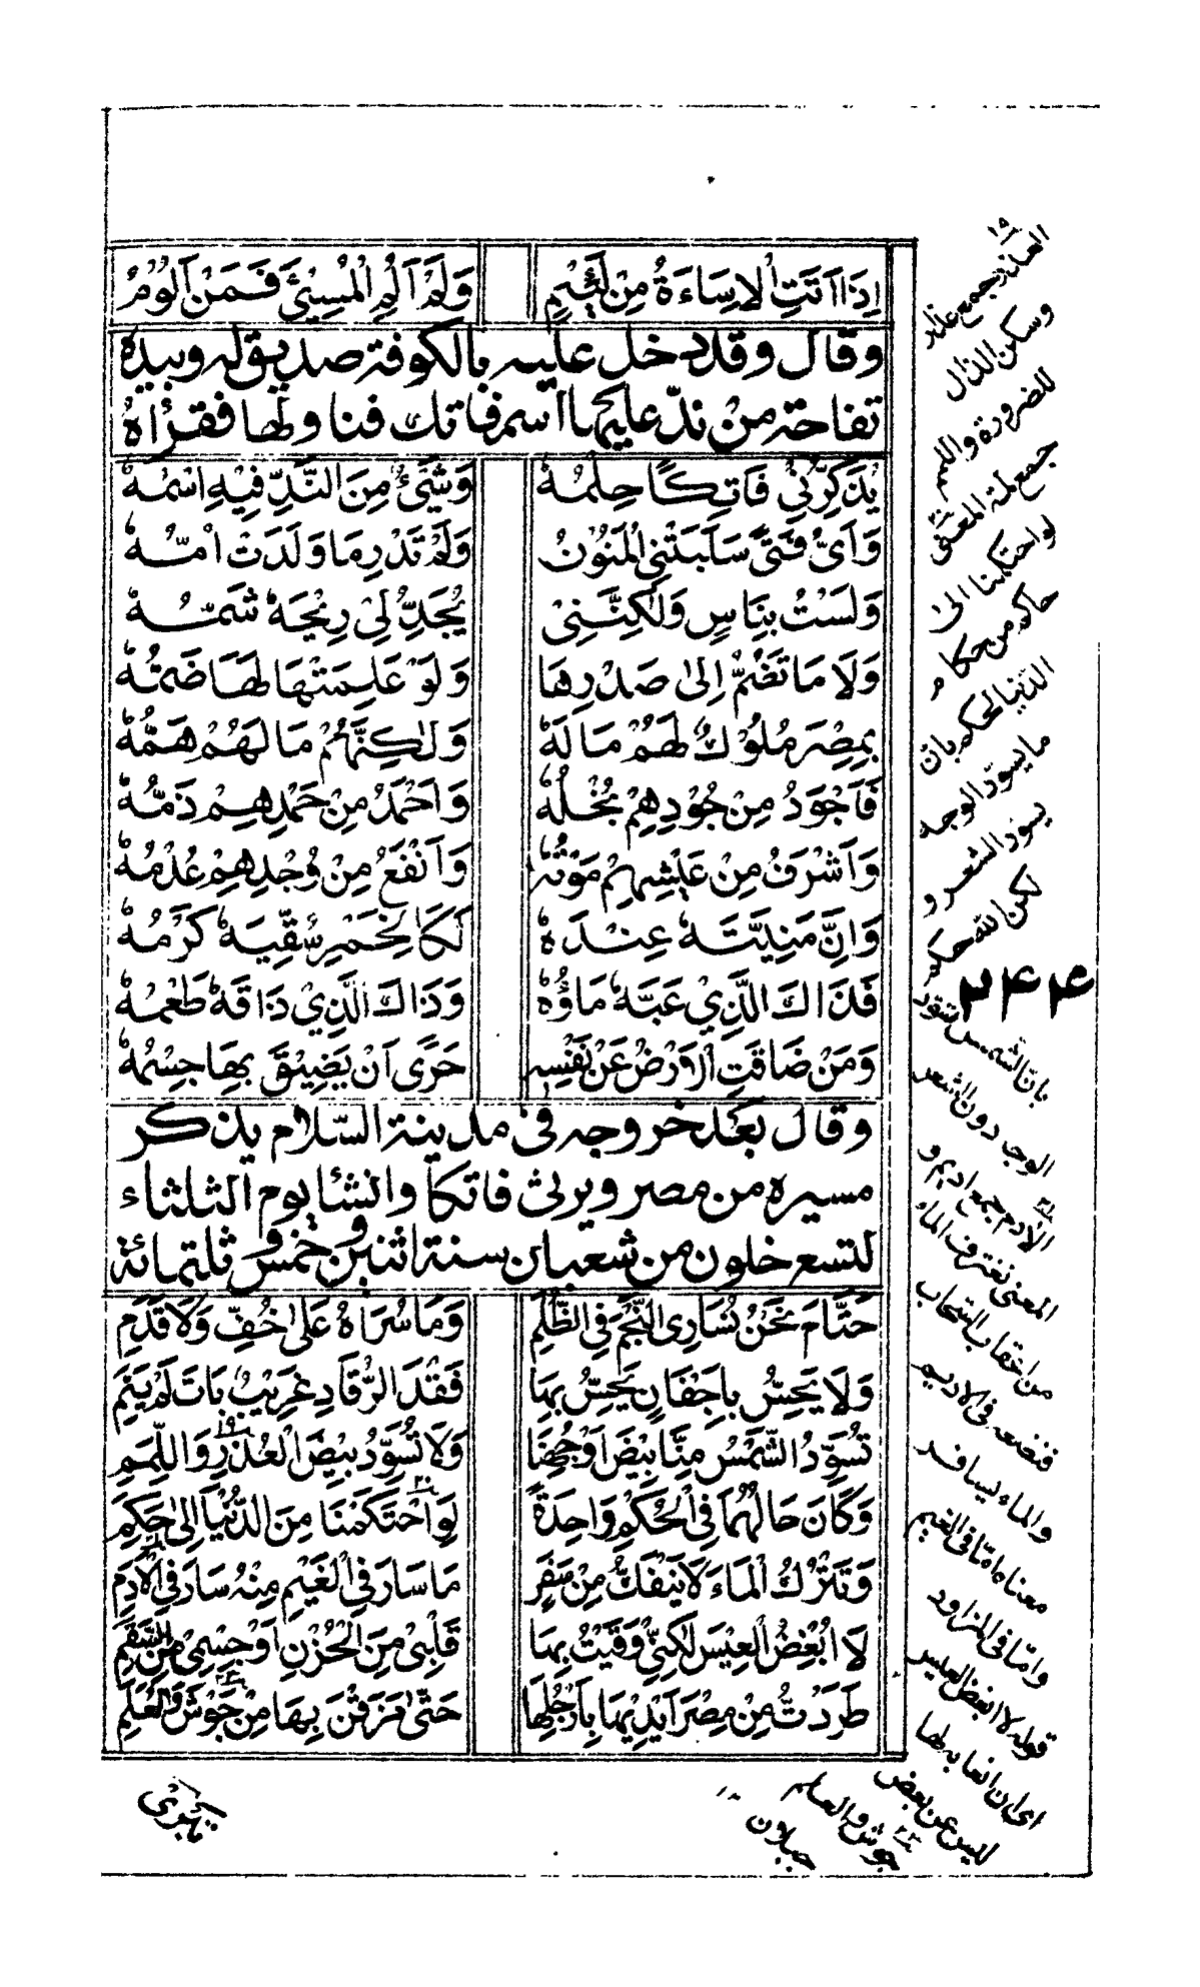 اِذَا اَتَتِ الْاِسَاءَةُ مِنْ لَئِيْمٍ وَلَمْ اَلُمِ الْمُسِيْئَ فَمَنْ اَلُوْمُ
وقال وقد دخل عليه بالكوفة صديق له وبيده
تفاحة من ندّ عليها اسم فاتك فناولها فقرأه
يُذَكِّرُنِيْ فَاتِكًا حِلْمُهٗ وَشَيْئٌ مِنَ النَّدِّ فِيْهِ اسْمُهٗ
وَاَيَّ فَتًى سَلَبَتْنِي الْمَنُوْنُ وَلَمْ تَدْرِ مَا وَلَدَتْ اُمُّهٗ
وَلَسْتُ بِنَاسٍ وَلٰكِنَّنِيْ يُجَدِّدُ لِيْ رِيْحَهٗ شَمُّهٗ
وَلَا مَا تَضُمُّ اِلٰى صَدْرِهَا وَلَوْ عَلِمَتْهَا لَهَا ضَمُّهٗ
بِمِصْرَ مُلُوْكٌ لَهُمْ مَا لَهٗ وَلٰكِنَّهُمْ مَا لَهُمْ هَمُّهٗ
فَاَجْوَدُ مِنْ جُوْدِهِمْ بُخْلُهٗ وَاَحْمَدُ مِنْ حَمْدِهِمْ ذَمُّهٗ
وَاَشْرَفُ مِنْ عَيْشِهِمْ مَوْتُهٗ وَاَنْفَعُ مِنْ وُجْدِهِمْ عُدْمُهٗ
وَاِنَّ مَنِيَّتَهٗ عِنْدَهٗ لَكَالْخَمْرِ سُقِّيَهٗ كَرْمُهٗ
فَذَاكَ الَّذِيْ عَبَّهٗ مَاؤُهٗ وَذَاكَ الَّذِيْ ذَاقَهٗ طَعْمُهٗ
وَمَنْ ضَاقَتِ الْاَرْضُ عَنْ نَفْسِهٖ حَرًى اَنْ يَضِيْقَ بِهَا جِسْمُهٗ
وقال بعد خروجه فى مدينة السّلام يذكر
مسيره من مصر ويرثى فاتكا وانشأ يوم الثلثاء
لتسع خلون من شعبان سنة اثنين وخمس وثلثمائة
حَتَّامَ نَحْنُ نُسَارِى النَّجْمَ فِى الظُّلَمِ وَمَا سُرَاهُ عَلٰى خُفٍّ وَلَا قَدَمِ
وَلَا يُحِسُّ بِاَجْفَانٍ يُحِسُّ بِهَا فَقْدَ الرُّقَادِ غَرِيْبٌ بَاتَ لَمْ يَنَمِ
تُسَوِّدُ الشَّمْسُ مِنَّا بِيْضَ اَوْجُهِنَا وَلَا تُسَوِّدُ بِيْضَ الْعُذْرِ وَاللِّمَمِ
وَكَانَ حَالُهُمَا فِى الْحُكْمِ وَاحِدَةً لَوِ احْتَكَمْنَا مِنَ الدُّنْيَا اِلٰى حَكَمِ
وَتَتْرُكُ الْمَاءَ لَا يَنْفَكُّ مِنْ سَفَرٍ مَا سَارَ فِى الْغَيْمِ مِنْهُ سَارَ فِى الْاَدَمِ
لَا اُبْغِضُ الْعِيْسَ لٰكِنِّيْ وَقَيْتُ بِهَا قَلْبِيْ مِنَ الْحُزْنِ اَوْ جِسْمِيْ مِنَ السَّقَمِ
طَرَدْتُ مِنْ مِصْرَ اَيْدِيْهَا بِاَرْجُلِهَا حَتّٰى مَرَقْنَ بِهَا مِنْ جَوْشَ وَالْعَلَمِ
العذر جمع عذار
وسكن الذال
للضرورة واللمم
جمع لمة المعنى
لو احتكمنا الى
حاكم من حكام
الدنيا لحكم بان
ما يسوّد الوجه
يسوّد الشعر و
لكن الله حكم
۲۴۴
بان الشمس تسود
الوجه دون الشعر
الادم جمع اديم و
المعنى نغترف الماء
من اعقاب السحاب
فنضعه فى الاديم
والماء يسافر
معناه امّا فى الغيم
وامّا فى المزاود
قوله لا ابغض العيس
اى ان اتعابه لها
ليس عن بغض
جوش والعلم
جبلان ۱۲